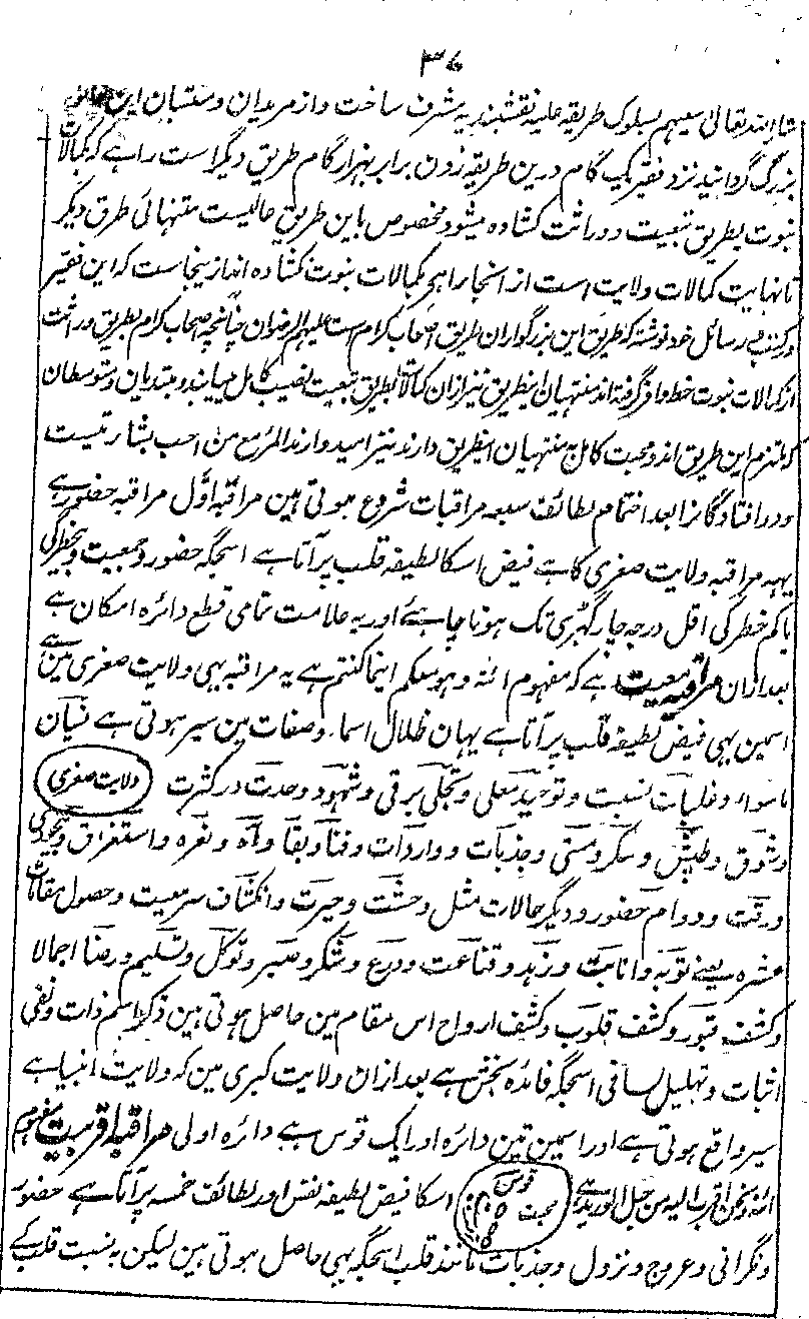 ۳۷
شاء اللہ تعالیٰ سیہم بسلوک طریقہ علیہ نقشبندیہ مشرف ساخت و از مریدان و منتسبان این
بزرگ گردانید نزد فقیر یک گام درین طریقہ زدن برابر ہزار گام طریق دیگر است راہے کہ بکمالات
نبوت بطریق تبعیت و وراثت کشادہ میشود مخصوص باین طریق عالیست منتہائی طرق دیگر
تا نہایت کمالات ولایت است از انجا راہے بکمالات نبوت نکشادہ اند ازینجاست کہ این فقیر
در کتب و رسائل خود نوشتہ کہ طریق این بزرگواران طریق اصحاب کرام است علیہم الرضوان چنانچہ اصحاب کرام بطریق وراثت
از کمالات نبوت حظ وافر گرفتہ اند منتہیان این طریق نیز ازان کمالات بطریق تبعیت نصیب کامل می یابند و مبتدیان و متوسطان
کہ ملتزم این طریق اند و محبت کامل بہ منتہیان این طریق دارند نیز امیدوارند المرء مع من احب بشارتیست
دور افتادگانرا بعد اختتام لطائف سبعہ مراقبات شروع ہوتی ہین مراقبہ اوّل مراقبہ حضور ہے
یہہ مراقبہ ولایت صغری کا ہے فیض اسکا لطیفہ قلب پر آتا ہے اسجگہ حضور و جمعیت و بیخطرگی
یا کم خطرگی اقل درجہ چار گہڑی تک ہونا چاہئے اور یہ علامت تمامی قطع دائرہ امکان ہے
بعد ازان مراقبہ معیت ہے کہ مفہوم انہ وہو معکم اینما کنتم ہے یہ مراقبہ بہی ولایت صغری مین ہے
اسمین بہی فیض لطیفہ قلب پر آتا ہے یہان ظلال اسماء و صفات مین سیر ہوتی ہے نسیان
ماسوا و غلبات نسبت و توحید فعلی و تجلی برقی و شہود وحدت در کثرت ولایت صغری
و شوق و طپش و سکر و مستی و جذبات و واردات و فنا و بقا و آہ و نعرہ و استغراق و بیخودی
و رقت و دوام حضور و دیگر حالات مثل وحشت و حیرت و انکشاف سر معیت و حصول مقامات
عشرہ یعنے توبہ و انابت و زہد و قناعت و ورع و شکر و صبر و توکل و تسلیم و رضا اجمالا
و کشف قبور و کشف قلوب و کشف ارواح اس مقام مین حاصل ہوتی ہین ذکر اسم ذات و نفی
اثبات و تہلیل لسانی اسجگہ فائدہ بخش ہے بعد ازان ولایت کبری مین کہ ولایت انبیا ہے
سیر واقع ہوتی ہے اور اسمین تین دائرہ اور ایک قوس ہے دائرہ اولی مراقبہ اقربیت مفہوم
انہ و نحن اقرب الیہ من حبل الورید ہے قوس محبت اسکا فیض لطیفہ نفس اور لطائف خمسہ پر آتا ہے حضور
و نگرانی و عروج و نزول و جذبات مانند قلب اسجگہ بہی حاصل ہوتی ہین لیکن بہ نسبت قلب کے